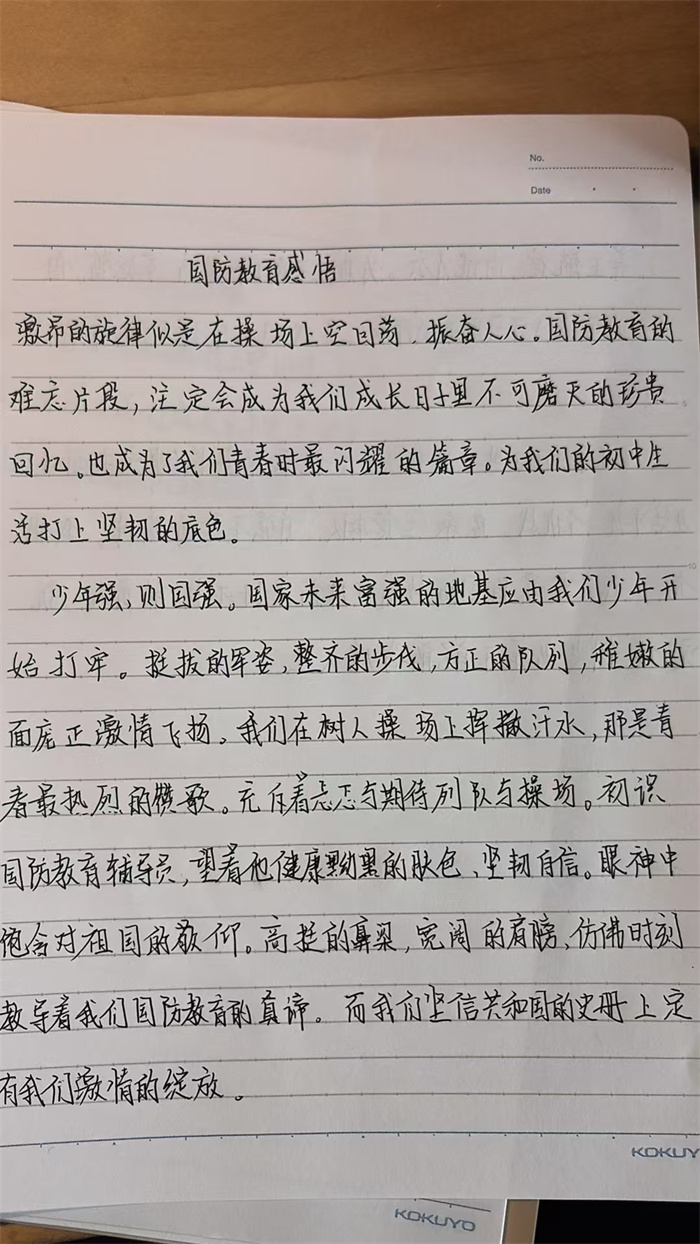 No.
Date
国防教育感悟
激昂的旋律似是在操场上空回荡，振奋人心。国防教育的
难忘片段，注定会成为我们成长日子里不可磨灭的珍贵
回忆。也成为了我们青春时最闪耀的篇章。为我们的初中生
活打上坚韧的底色。
少年强，则国强。国家未来富强的地基应由我们少年开
始打牢。挺拔的军姿，整齐的步伐，方正的队列，稚嫩的
面庞正激情飞扬。我们在树人操场上挥撒汗水，那是青
春最热烈的赞歌。充斥着忐忑与期待列队与操场。初识
国防教育辅导员，望着他健康黝黑的肤色、坚韧自信。眼神中
饱含对祖国的敬仰。高挺的鼻梁，宽阔的肩膀，仿佛时刻
教导着我们国防教育的真谛。而我们坚信共和国的史册上定
有我们激情的绽放。
KOKUY
KOKUYO